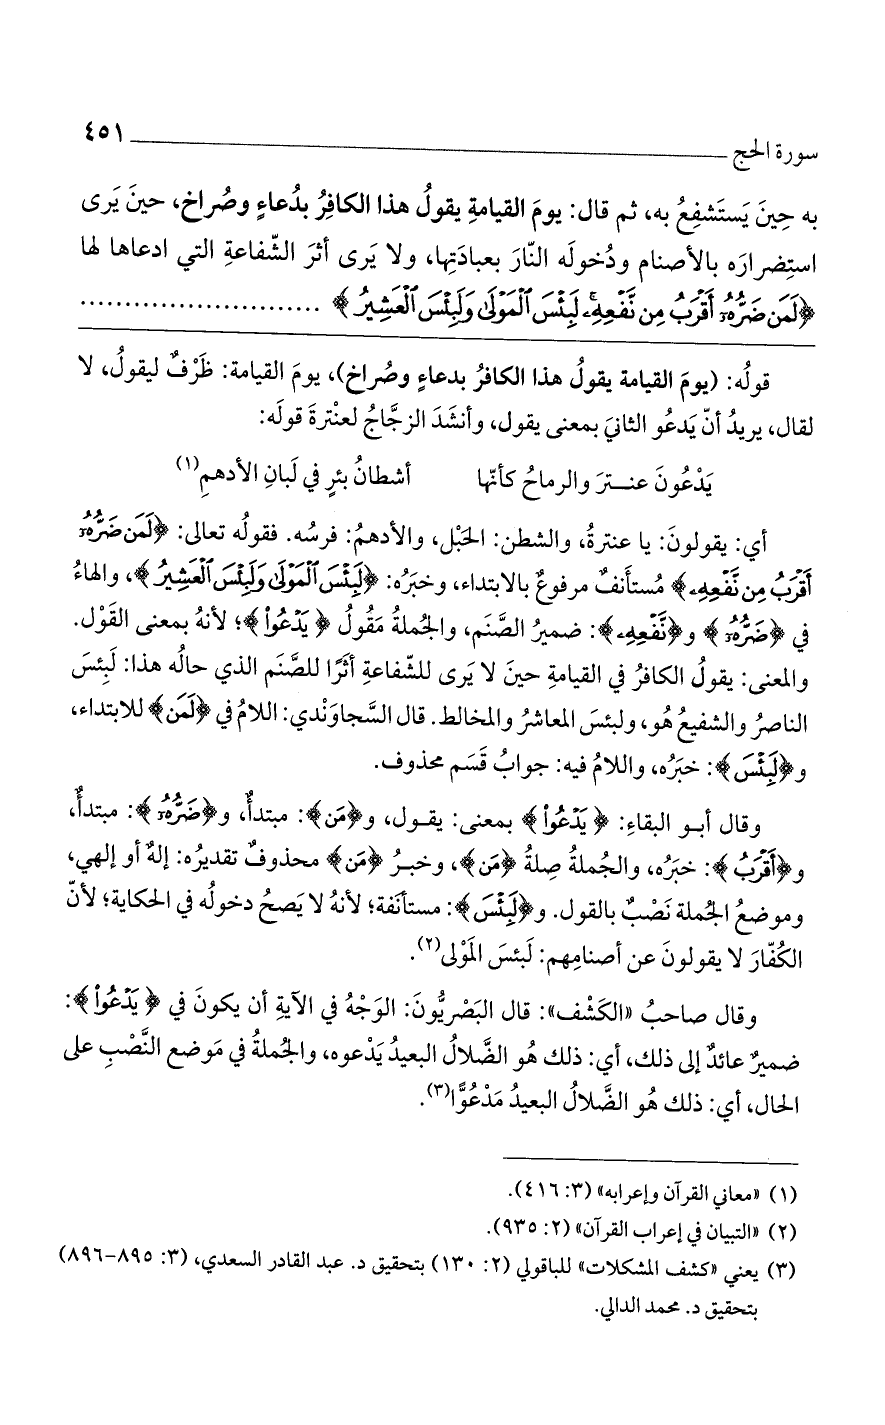 سورة الحج ٤٥١
به حِينَ يَستَشفِعُ به، ثم قال: يومَ القيامةِ يقولُ هذا الكافِرُ بدُعاءٍ وصُراخ، حينَ يَرى
استِضرارَه بالأصنام ودُخولَه النّارَ بعبادَتِها، ولا يَرى أثرَ الشّفاعةِ التي ادعاها لها
﴿لَمَن ضَرُّهُۥٓ أَقْرَبُ مِن نَّفْعِهِۦۚ لَبِئْسَ ٱلْمَوْلَىٰ وَلَبِئْسَ ٱلْعَشِيرُ﴾ ...........................
قولُه: (يومَ القيامة يقولُ هذا الكافرُ بدعاءٍ وصُراخ)، يومَ القيامة: ظَرْفٌ ليقولُ، لا
لقال، يريدُ أنّ يَدعُو الثانيَ بمعنى يقول، وأنشَدَ الزجَّاجُ لعنْترةَ قولَه:
يَدْعُونَ عنـترَ والرماحُ كأنّها أشطانُ بئرٍ في لَبانِ الأدهمِ(١)
أي: يقولونَ: يا عنترةُ، والشطن: الحَبْل، والأدهمُ: فرسُه. فقولُه تعالى: ﴿لَمَن ضَرُّهُۥٓ
أَقْرَبُ مِن نَّفْعِهِۦ﴾ مُستأنَفٌ مرفوعٌ بالابتداء، وخبَرُه: ﴿لَبِئْسَ ٱلْمَوْلَىٰ وَلَبِئْسَ ٱلْعَشِيرُ﴾، والهاءُ
في ﴿ضَرُّهُۥٓ﴾ و﴿نَّفْعِهِۦ﴾: ضميرُ الصَّنَم، والجُملةُ مَقُولُ ﴿يَدْعُواْ﴾؛ لأنهُ بمعنى القَوْل.
والمعنى: يقولُ الكافرُ في القيامةِ حينَ لا يَرى للشّفاعةِ أثَرًا للصَّنَم الذي حالُه هذا: لَبِئسَ
الناصرُ والشفيعُ هُو، ولبئسَ المعاشرُ والمخالط. قال السَّجاوَنْدي: اللامُ في ﴿لَمَن﴾ للابتداء،
و﴿لَبِئْسَ﴾: خبَرُه، واللامُ فيه: جوابُ قَسَم محذوف.
وقال أبـو البقاءِ: ﴿يَدْعُواْ﴾ بمعنى: يقـول، و﴿مَن﴾: مبتدأٌ، و﴿ضَرُّهُۥٓ﴾: مبتدأٌ،
و﴿أَقْرَبُ﴾: خبَرُه، والجُملةُ صِلةُ ﴿مَن﴾، وخبـرُ ﴿مَن﴾ محذوفٌ تقديرُه: إلهٌ أو إلهي،
وموضعُ الجُملة نَصْبٌ بالقول. و﴿لَبِئْسَ﴾: مستأنَفة؛ لأنهُ لا يَصحُ دخولُه في الحكاية؛ لأنّ
الكُفّارَ لا يقولونَ عن أصنامِهم: لَبئسَ المَوْلى(٢).
وقال صاحبُ «الكَشْف»: قال البَصْريُّونَ: الوَجْهُ في الآيةِ أن يكونَ في ﴿يَدْعُواْ﴾:
ضميرٌ عائدٌ إلى ذلك، أي: ذلك هُو الضَّلالُ البعيدُ يَدْعوه، والجُملةُ في مَوضع النَّصْبِ على
الحال، أي: ذلك هُو الضَّلالُ البعيدُ مَدْعُوًّا(٣).
(١) «معاني القرآن وإعرابه» (٣: ٤١٦).
(٢) «التبيان في إعراب القرآن» (٢: ٩٣٥).
(٣) يعني «كشف المشكلات» للباقولي (٢: ١٣٠) بتحقيق د. عبد القادر السعدي، (٣: ٨٩٥-٨٩٦)
بتحقيق د. محمد الدالي.